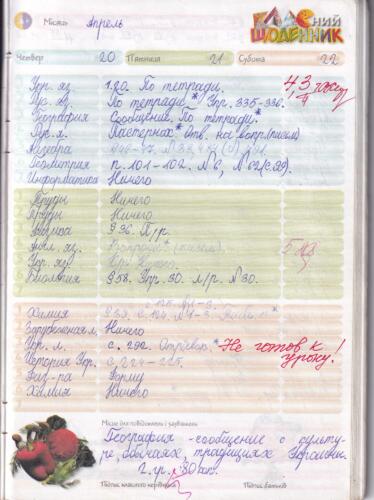 Місяць Апрель
КЛАСНИЙ
ЩОДЕННИК
Четвер 20 П'ятниця 21 Субота 22
Укр. яз. 120. По тетради.
Рус. яз. По тетради* Упр. 335-336.
География Сообщение. По тетради.*
Рус. л. Пастернак* Отв. на вопр. (письм)
Алгебра
Геометрия п. 101-102. №6, №62
Информатика Ничего
Труды Ничего
Труды Ничего
Физика §36. П/р.
Англ. яз. Вопросы* (письм).
Укр. яз.
Биология §58. Упр. 30. л/р. №30.
Химия
Зарубежная л. Ничего
Укр. л. с. 292. Отрывок.* Не готов к
уроку!
История Укр. с. 224-225.
Физ-ра Форму
Химия Ничего
Місце для повідомлень і зауважень
География - сообщение о культу-
ре обычаях, традициях Украины.
2 гр. 80 коп.
Підпис класного керівника Підпис батьків